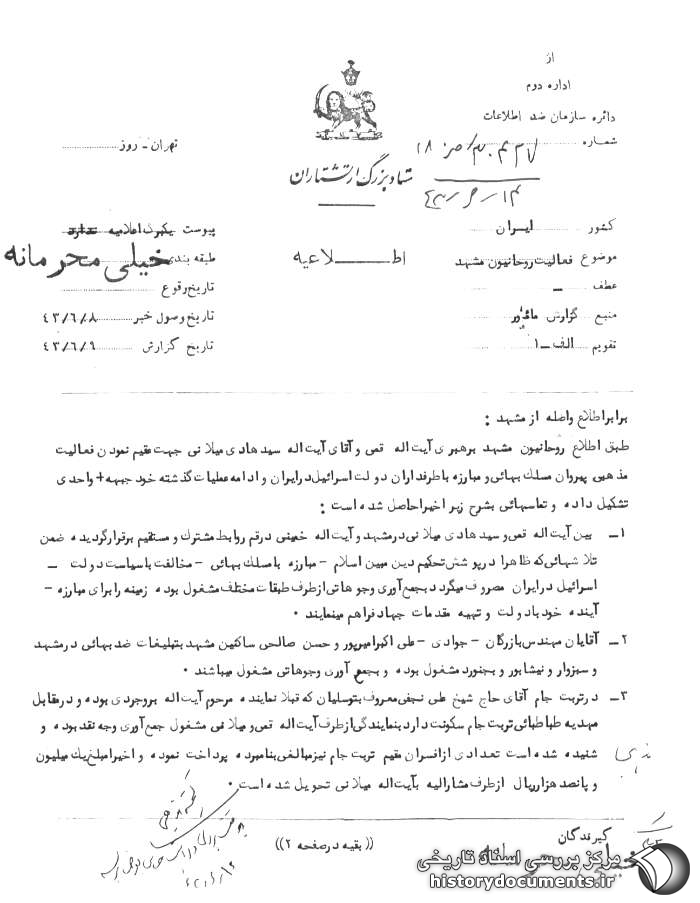 از
اداره دوم
دائره سازمان ضد اطلاعات
شماره
تهران ـ روز
ستاد بزرگ ارتشتاران
کشور ایـران
پیوست یکبرگ اعلامیه ندارد
موضوع فعالیت روحانیون مشهد
اطـــلاعیه
طبقه بندی خیلی محرمانه
عطف ـ
تاریخ وقوع
منبع گزارش مأمور
تاریخ وصول خبر ۴۳/۶/۸
تقویم الف ـ ۱
تاریخ گزارش ۴۳/۶/۹
برابر اطلاع واصله از مشهد :
طبق اطلاع روحانیون مشهد برهبری آیت اله قمی و آقای آیت اله سید هادی میلانی جهت عقیم نمودن فعالیت
مذهبی پیروان مسلک بهائی و مبارزه با طرفداران دولت اسرائیل در ایران و ادامه عملیات گذشته خود جبهه + واحدی
تشکیل داده و تماسهائی بشرح زیر اخیرا حاصل شده است :
۱ـ بین آیت اله قمی و سید هادی میلانی در مشهد و آیت اله خمینی در قم روابط مشترک و مستقیم برقرار گردیده ضمن
تلاشهائی که ظاهرا در پوشش تحکیم دین مبین اسلام – مبارزه با مسلک بهائی – مخالفت با سیاست دولت ـ
اسرائیل در ایران مصروف میگردد بجمع آوری وجوهاتی از طرف طبقات مختلف مشغول بوده زمینه را برای مبارزه –
آینده خود با دولت و تهیه مقدمات جهاد فراهم مینمایند .
۲ـ آقایان مهندس بازرگان – جوادی – علی اکبر امیرپور و حسن صالحی ساکنین مشهد بتبلیغات ضد بهائی در مشهد
و سبزوار و نیشابور و بجنورد مشغول بوده و بجمع آوری وجوهاتی مشغول میباشند .
۳ـ در تربت جام آقای حاج شیخ علی نجفی معروف بتوسلیان که قبلا نماینده مرحوم آیت اله بروجردی بوده و در مقابل
مهدیه طباطبائی تربت جام سکونت دارد بنمایندگی از طرف آیت اله قمی و میلانی مشغول جمع آوری وجه نقد بوده و
شنیده شده است تعدادی از افسران مقیم تربت جام نیز مبالغی بنامبرده پرداخت نموده و اخیرا مبلغ یک میلیون
و پانصد هزار ریال از طرف مشارالیه بآیت اله میلانی تحویل شده است .
گیرندگان
((بقیه در صفحه ۲))
مرکز بررسی اسناد تاریخی
historydocuments.ir